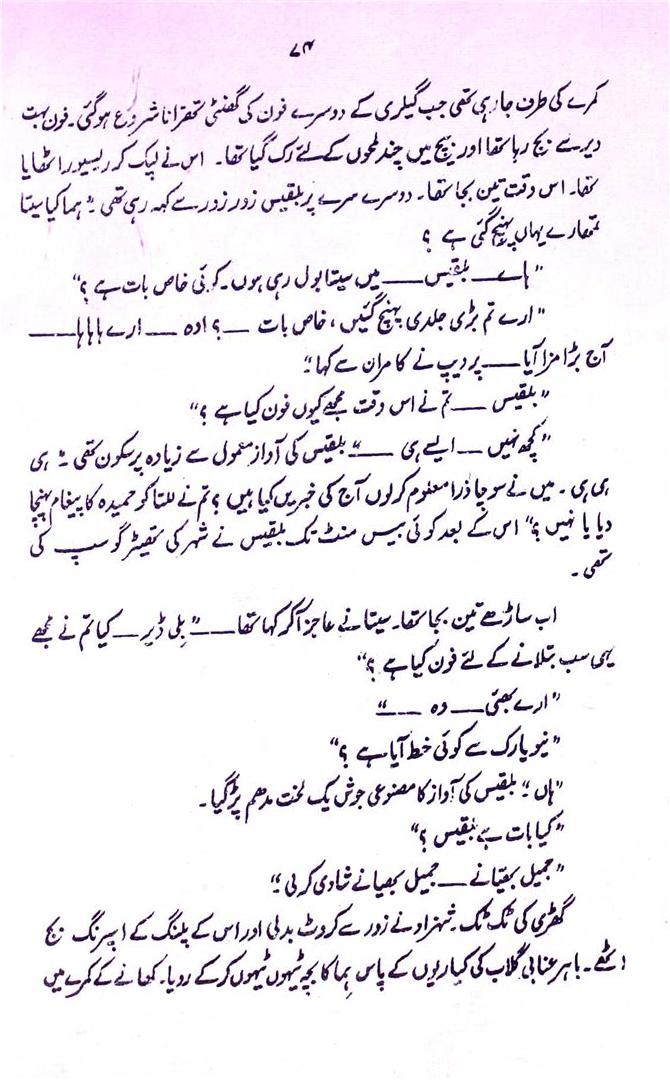 ۷۴
کمرے کی طرف جا رہی تھی جب گیلری کے دوسرے فون کی گھنٹی تھرانا شروع ہو گئی۔ فون بہت
دیر سے بج رہا تھا اور بیچ میں چند لمحوں کے لئے رک گیا تھا۔ اس نے لپک کر ریسیور اٹھایا
تھا۔ اس وقت تین بجا تھا۔ دوسرے سرے پر بلقیس زور زور سے کہہ رہی تھی۔ "ہما کیا سیتا
تمھارے یہاں پہنچ گئی ہے ؟
"ہاے ــــ بلقیس ــــ میں سیتا بول رہی ہوں۔ کوئی خاص بات ہے ؟"
"ارے تم بڑی جلدی پہنچ گئیں، خاص بات ــــ؟ اوہ ــــ ارے ہا ہا ہا ــــ
آج بڑا مزا آیا ــــ پردیپ نے کامران سے کہا۔"
"بلقیس ــــ تم نے اس وقت مجھے کیوں فون کیا ہے ؟"
"کچھ نہیں ــــ ایسے ہی ــــ" بلقیس کی آواز معمول سے زیادہ پر سکون تھی۔ "ہی
ہی ہی۔ میں نے سوچا ذرا معلوم کر لوں آج کی خبریں کیا ہیں ؟ تم نے للتا کو حمیدہ کا پیغام پہنچا
دیا یا نہیں ؟" اس کے بعد کوئی بیس منٹ تک بلقیس نے شہر کی تھیٹر گوسپ کی
تھی۔
اب ساڑھے تین بجا تھا۔ سیتا نے عاجز آ کر کہا تھا ــــ "بلی ڈیر ــــ کیا تم نے مجھے
یہی سب بتلانے کے لئے فون کیا ہے ؟"
"ارے بھئی ــــ وہ ــــ"
"نیو یارک سے کوئی خط آیا ہے ؟"
"ہاں ؛" بلقیس کی آواز کا مصنوعی جوش یک لخت مدھم پڑ گیا۔
"کیا بات ہے بلقیس ؟"
"جمیل بھیّا نے ــــ جمیل بھیا نے شادی کر لی ؛"
گھڑی کی ٹک ٹک۔ شہزاد نے زور سے کروٹ بدلی اور اس کے پلنگ کے اسپرنگ بج
اٹھے۔ باہر عنابی گلاب کی کیاریوں کے پاس ہما کا بچہ ٹیہوں ٹیہوں کر کے رو دیا۔ کھانے کے کمرے میں